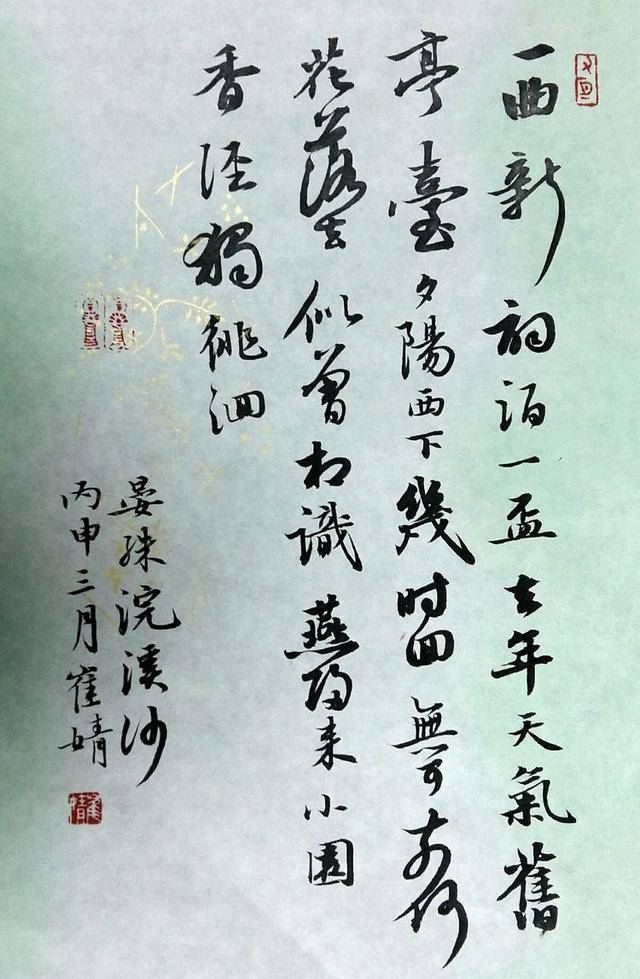 一曲新詞酒一盃去年天氣舊
亭臺夕陽西下幾时回無可奈何
花落去似曾相識燕归来小園
香径獨徘徊
晏殊浣溪沙
丙申三月崔婧